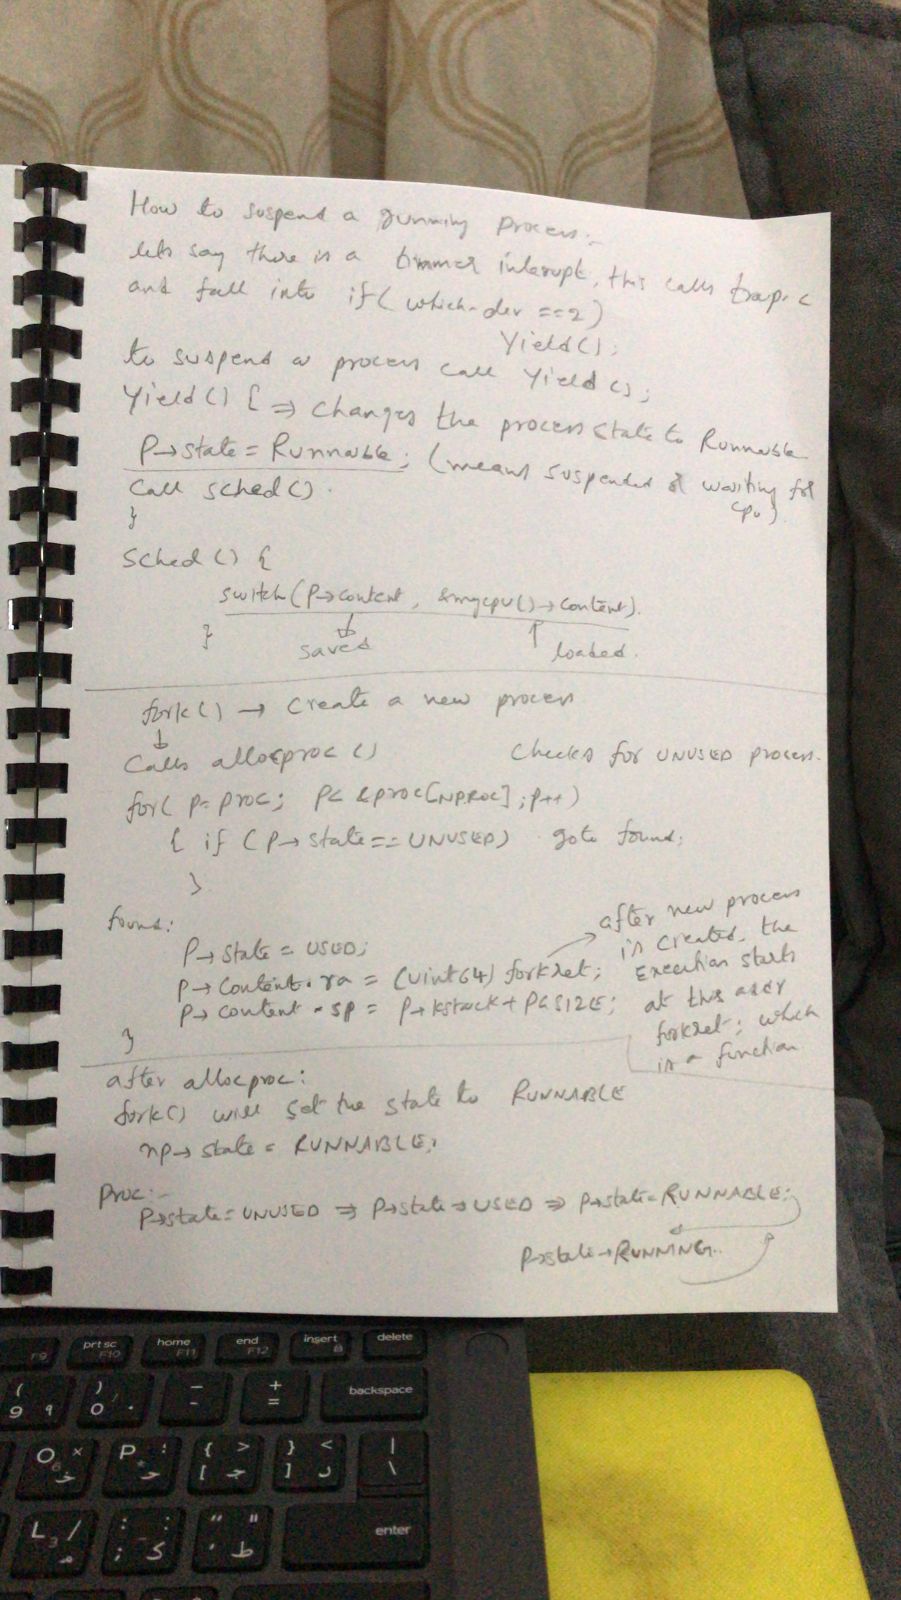 How to suspend a running process:-
lets say there is a timmer interupt, this calls trap.c
and fall into if( which-dev ==2)
Yield();
to suspend a process call Yield();
Yield() { ⇒ changes the process state to Runnable
P→state = Runnable; (means suspended or waiting for
cpu)
call sched().
}
Sched() {
switch(P→content, &mycpu()→content).
}
saved
loaded.
fork() → create a new process
↓
Calls allocproc()
Checks for UNUSED process.
for( p= proc; p< &proc[NPROC]; p++)
{ if (p→state==UNUSED) goto found;
}
found:
P→state = USED;
p→content.ra = (uint64) forkret;
p→content.sp = p→kstack + PGSIZE;
}
after new process
is created, the
Execution starts
at this addr
forkret; which
is a function
after allocproc:
fork() will set the state to RUNNABLE
np→state = RUNNABLE;
Proc:-
P→state=UNUSED ⇒ P→state→USED ⇒ p→state=RUNNABLE;
p→state→RUNNING.
prt sc
F10
home
F11
end
F12
insert
delete
F9
( 9 ٩
) 0 ٠
- _
+ =
backspace
O خ
P ح
{ [ > ج
} ] < د
| \
L م /
: ; ك
" ' ط
enter